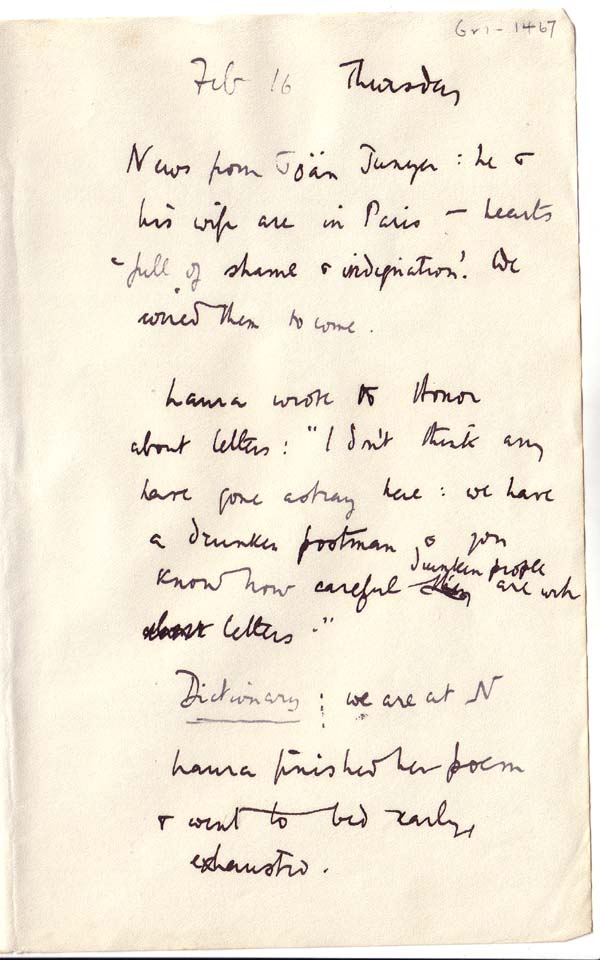 Gri-1467
Feb 16 Thursday
News from Joän Junyer : he &
his wife are in Paris – hearts
"full of shame & indignation'. We
wired them to come.
Laura wrote to Honor
about letters : "I don't think any
have gone astray here : we have
a drunken postman & you
drunken people
know how careful they are with
about letters."
Dictionary : we are at N
Laura finished her poem
& went to bed early,
exhausted.